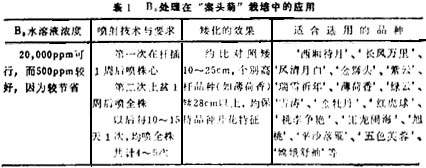 表 1 B₉处理在“案头菊”栽培中的应用
B₉水溶液浓度 喷射技术与要求 矮化的效果 适合选用的品种
20,000ppm可行，而500ppm较好，因为较节省
第一次在扦插1周后喷株心
第二次上盆1周后喷全株
以后每10～15天1次，均喷全株
共计4～5次
约比对照矮10～25cm，个别高杆品种（如薄荷香）矮28cm以上，均保持品种片花特征
‘西厢待月’、‘长风万里’、
‘风清月白’、‘金狮头’、‘紫云’、
‘瑞雪祈年’、‘薄荷香’、‘绿云’、
‘青涛’、‘金牡丹’、‘红虎球’、
‘桃李争艳’、‘江龙闹海’、‘旭
桃’、‘平沙落雁’、‘五色芙蓉’、
‘嫦娥舒袖’等